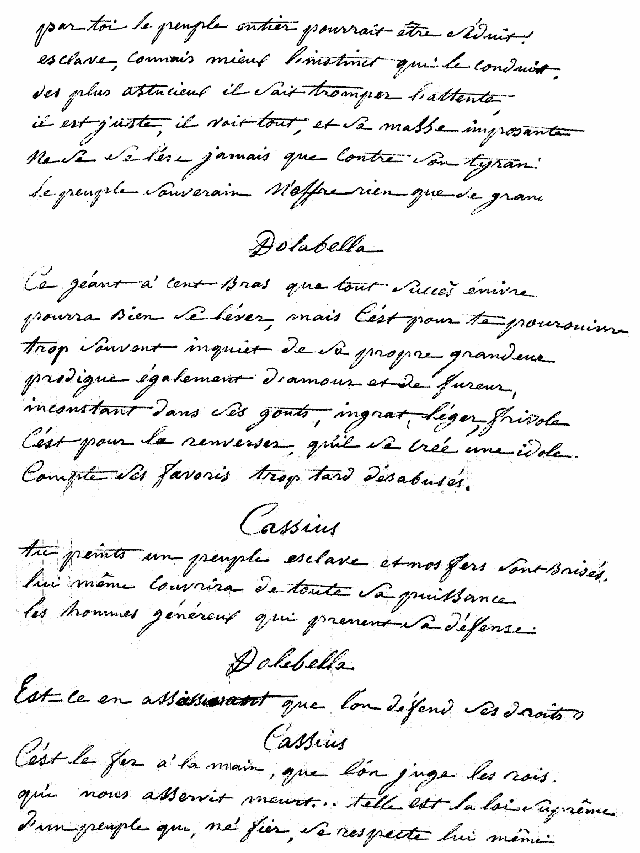 par toi le peuple entier pourrait etre séduit!
esclave, connais mieux l'instinct qui le conduit,
des plus astucieux il sait tromper l'attente,
il est juste, il voit tout, et sa masse imposante
ne se leve jamais que contre son tyran:
le peuple souverain n'offre rien que de gran
Dolabella
Ce géant a' cent Bras que tout succès énivre
pourra Bien se léver, mais C'est pour te poursuivre
trop souvent inquiet de sa propre grandeur
prodigue également d'amour et de fureur,
inconstant dans ses gouts, ingrat, léger frivole
C'est pour la renverser, qu'il se créé une idole.
Compte ses favoris trop tard désabusés.
Cassius
tu peints un peuple esclave et nos fers sont Brisés,
lui même couvrira de toute sa puissance
les hommes généreux qui prennent sa défense.
Dolabella
Est-ce en assassinant que l'on défend ses droits
Cassius
C'est le fer a' la main, que l'on juge les rois.
qui nous asservit meurt... telle est la loi suprême
d'un peuple qui, né fier, se respecte lui même